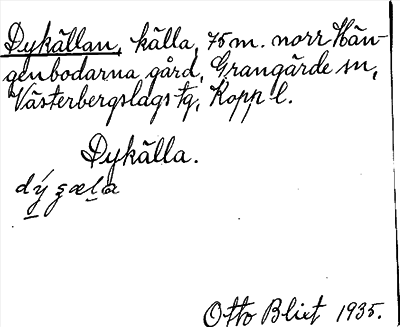 Dykällan, källa, 75 m. norr Hän-
genbodarna gård, Grangärde sn,
Västerbergslags tg, Kopp l.
Dykälla.
dý ȿæḷa
Otto Blixt 1935.